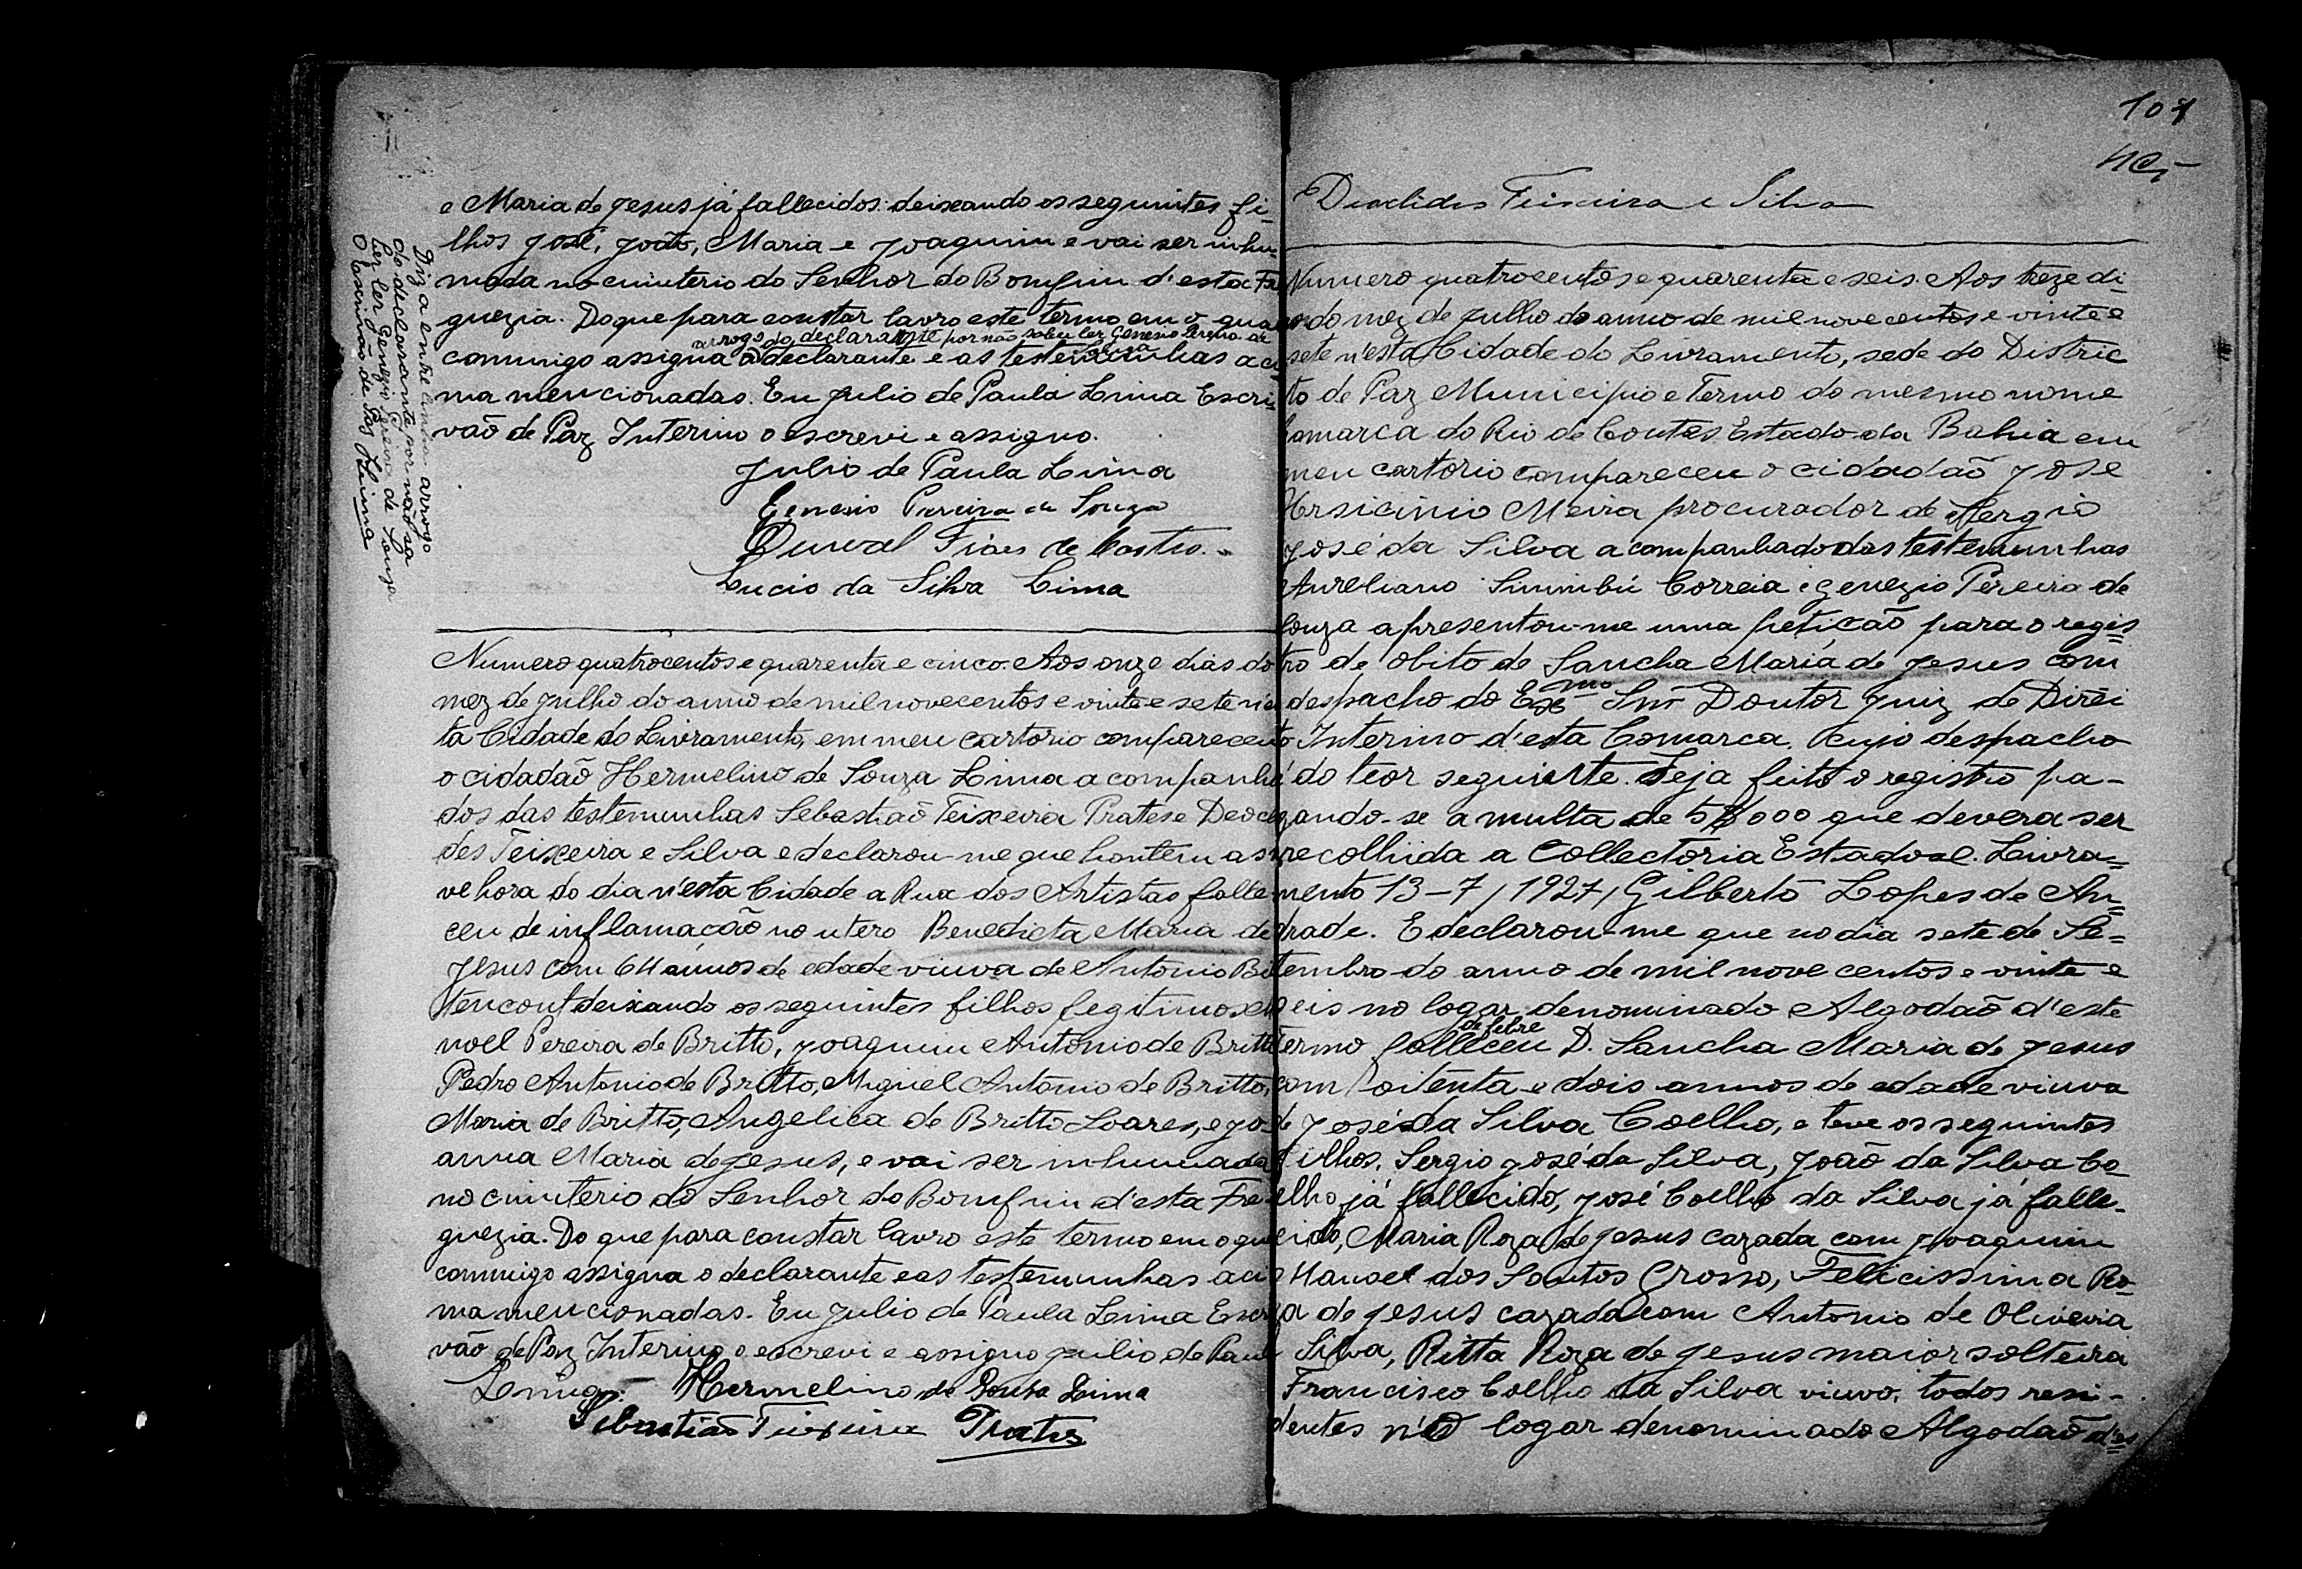 e Maria de Jesus já fallecidos: deixando os seguintes fi-
lhos José, João, Maria e Joaquim e vai ser inhu-
mada no cimiterio do Senhor do Bomfim d'esta Fre
guezia. Do que para constar lavro este termo em o qual
arrogo do declarante por não saber ler Genesio Pereira de
Souza
commigo assigna o declarante e as testemunhas aci-
ma mencionadas. Eu Julio de Paula Lima Escri-
vão de Paz Interino o escrevi e assigno.
Julio de Paula Lima
Genesio Pereira de Souza
Durval Fiaes de Castro.
Lucio da Silva Lima
Diz a entre linha arrogo
do declarante por não sa
ber ler Genezio Pereira de Souza
O Escrivão de Paz Lima
Numero quatrocentos e quarenta e cinco. Aos onze dias do
mez de Julho do anno de mil novecentos e vinte e sete n'es
ta Cidade do Livramento, em meu cartorio compareceu
o cidadão Hermelino de Souza Lima acompanha
dos das testemunhas Sebastião Teixeira Prates e Deocli
des Teixeira e Silva e declarou-me que hontem as no
ve hora do dia n'esta Cidade a Rua dos Artistas falle
ceu de inflamação no utero Benedicta Maria de
Jesus com 64 annos de edade viuva de Antonio
deixando os seguintes filhos legitimos: Ma
noel Pereira de Britto, Joaquim Antonio de Britto
Pedro Antonio de Britto, Miguel Antonio de Britto,
Maria de Britto, Angelica de Britto Soares, e Jo-
anna Maria de Jesus, e vai ser inhumada
no cimiterio do Senhor do Bomfim d'esta Fre
guezia. Do que para constar lavro este termo em o qual
commigo assigna o declarante e as testemunhas aci
ma mencionadas. Eu Julio de Paula Lima Escri
vão de Paz Interino o escrevi e assigno Julio de Paula
Lima. Hermelino de Souza Lima
Sebastião Teixeira Prates
107
Deoclides Teixeira e Silva
Numero quatrocentos e quarenta e seis. Aos treze di-
as do mez de Julho do anno de mil nove centos e vinte e
sete n'esta Cidade do Livramento, sede do Distric
to de Paz Municipio e Termo do mesmo nome
Comarca do Rio de Contas Estado da Bahia em
meu cartorio compareceu o cidadão José
Ursicinio Meira procurador de Sergio
José da Silva acompanhado das testemunhas
Aureliano Sinimbú Correia e Genezio Pereira de
Souza apresentou-me uma petição para o regis=
tro de obito de Sancha Maria de Jesus com
despacho do Exmo Snr Doutor Juiz de Direi
to Interino d'esta Comarca. Cujo despacho
é do teor seguinte. Seja feito o registro pa-
gando-se a multa de 5$000 que devera ser
recolhida a Collectoria Estadoal. Livra=
mento 13-7/1927/ Gilberto Lopes de An=
drade. E declarou-me que no dia sete de Se=
tembro do anno de mil nove centos e vinte e
seis no logar denominado Algodão d'este
de febre
Termo falleceu D. Sancha Maria de Jesus
com oitenta e dois annos de edade viuva
de José da Silva Coelho, e teve os seguintes
filhos. Sergio José da Silva, João da Silva Co
elho já fallecido, José Coelho da Silva já falle-
cido, Maria Roza de Jesus cazada com Joaquim
Manoel dos Santos Grosso, Felicissima Ro-
za de Jesus cazada com Antonio de Oliveira
Silva, Ritta Roza de Jesus maior solteira
Francisco Coelho da Silva viuvo, todos resi-
dentes n'o logar denominado Algodão d'es